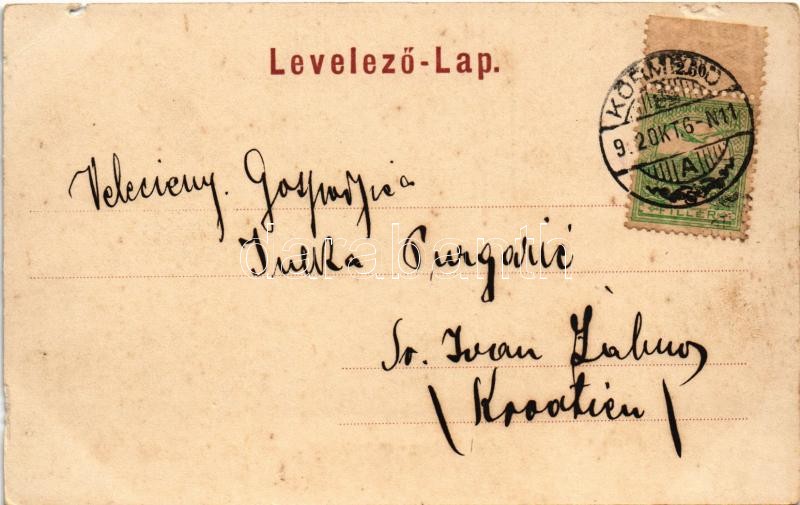 Levelező-Lap.
KÖRMEND
9.20KT.6-N11
A
5 FILLÉR
Velecieny. Gospodjica
Julka Purgarić
Sv. Ivan Žabno
(Kroatien)
darabanth